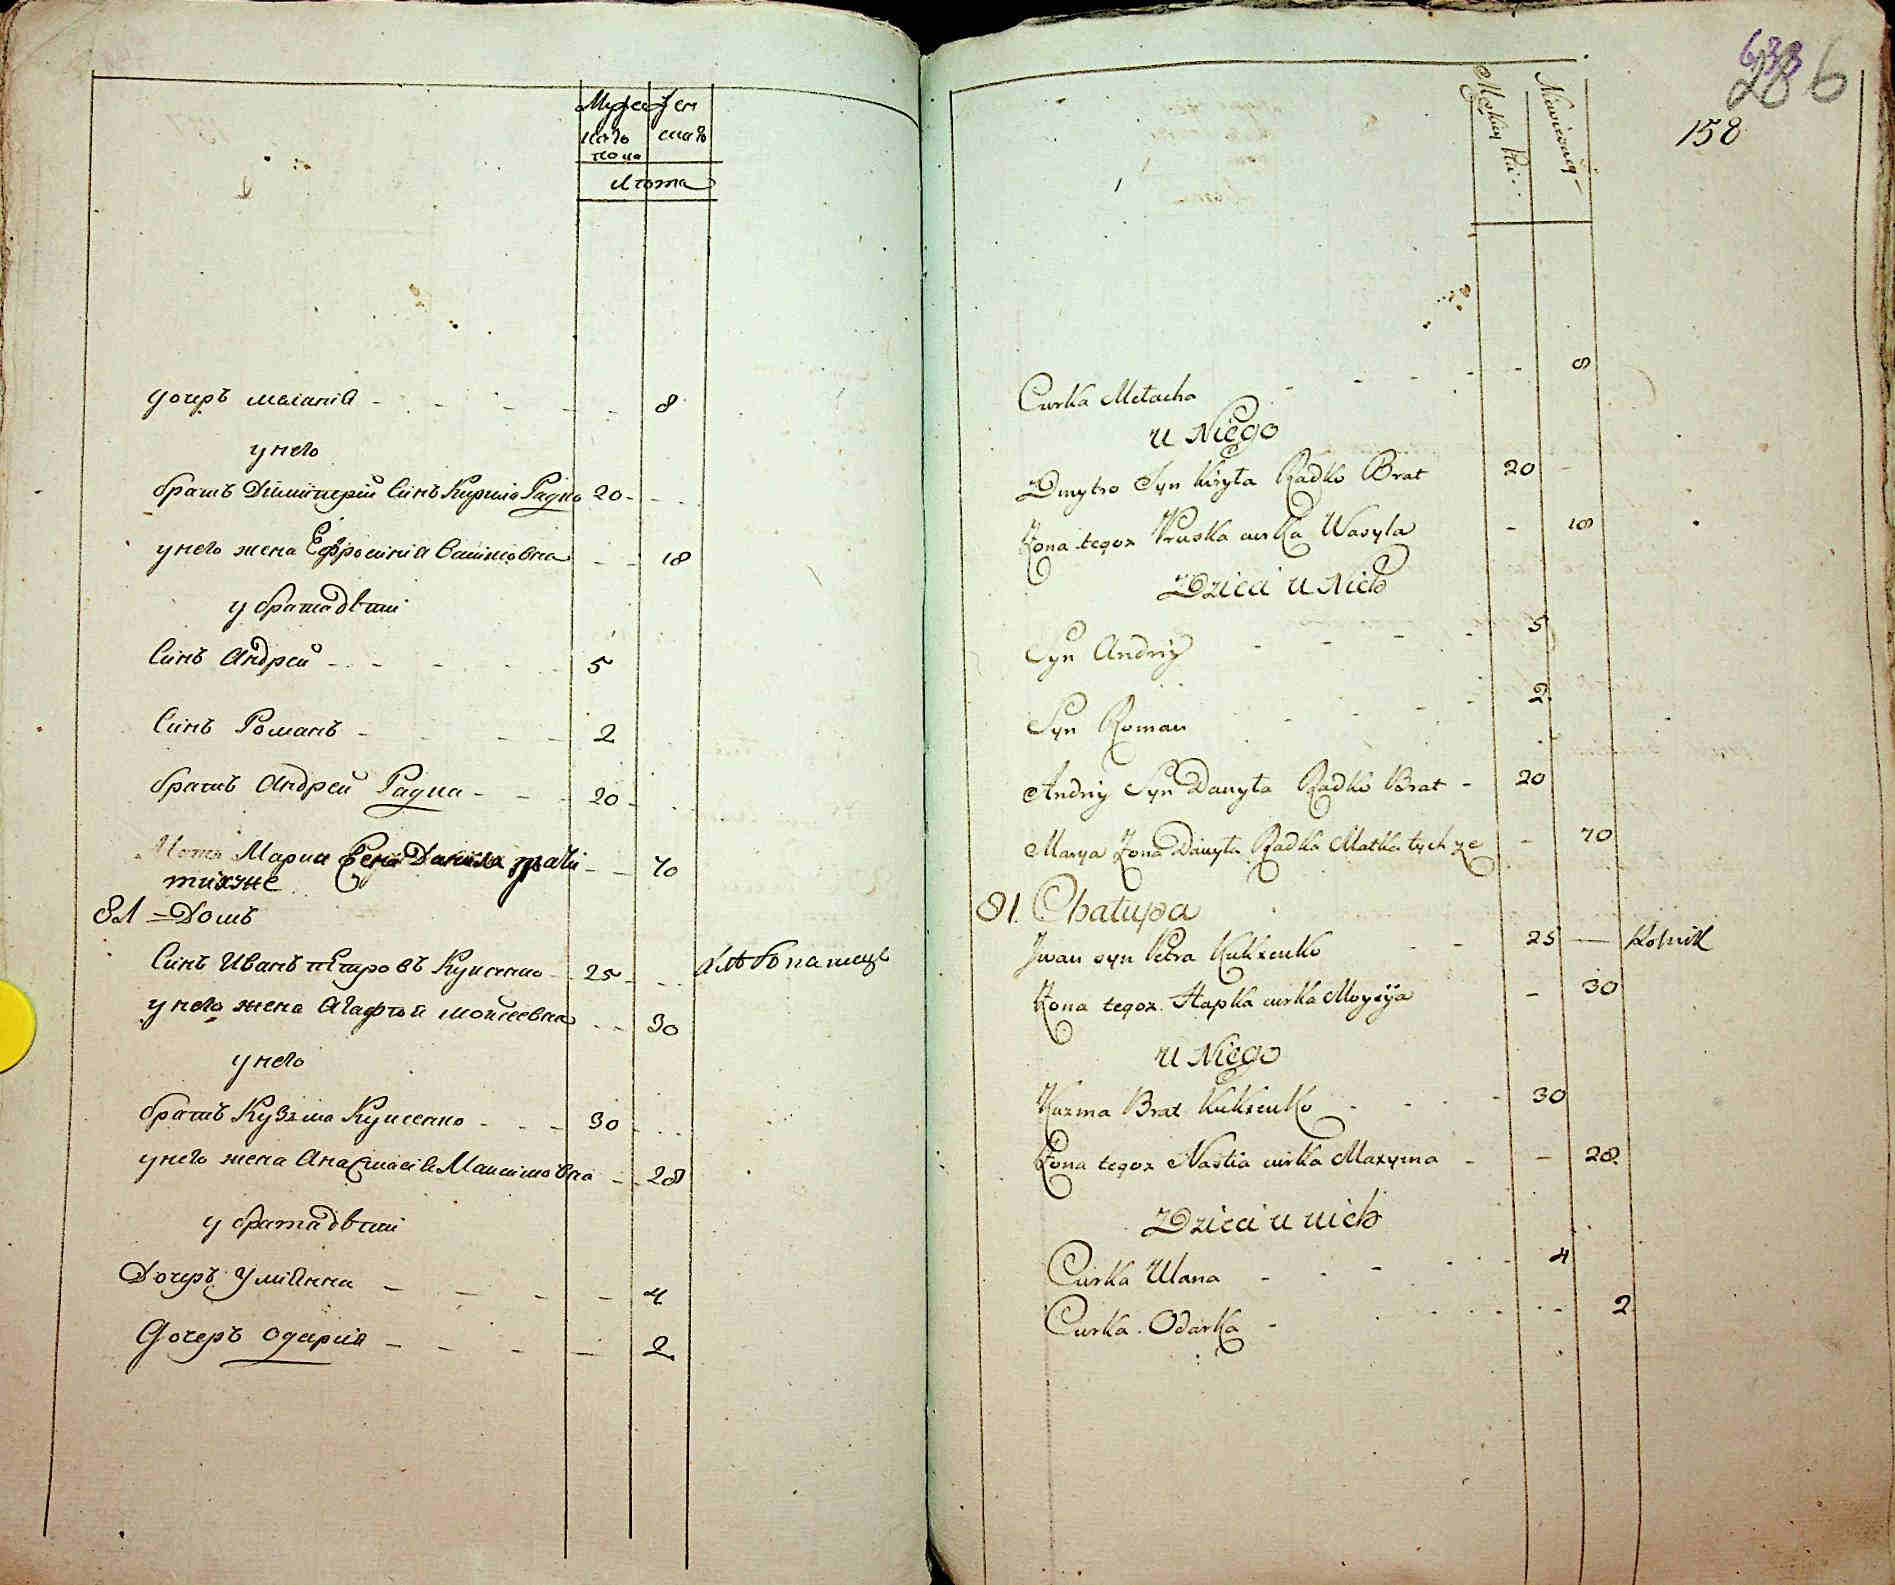 Мужеска
Жен
пола
ска
Лѣта
дочеръ меланія 8
у него
братъ Димитерій Синъ Кирило Радко 20
у него жена Ефросинія Василовна 18
у брата дѣти
Синъ Андрей 5
Синъ Романъ 2
братъ Андрей Радка 20
Мать Мариа Жена Данила 70
тихже
81 Домъ
Синъ Иванъ петровъ Куксенко 25 хлѣбопашецъ
у него жена Агафтія мойсеевна 30
у него
братъ Кузьма Куксенко 30
у него жена Анастасія Максимовна 28
у брата дѣти
Дочеръ Улиянна 4
Дочеръ одарка 2
633
286
158
Męzkiey
Niewieściey
Curka Melacha 8
u Niego
Dmytro Syn Kiryła Radko Brat 20
Zona tegoz Pruska curka Wasyla 18
Dzieci u Nich
Syn Andriy 5
Syn Roman 2
Andriy Syn Danyła Radko Brat 20
Marya Zona Danyła Radka Matka tychze 70
81. Chałupa
Jwan syn Petra Kukszenko 25 Rolnik
Zona tegoz Hapka curka Moyzija 30
u Niego
Kuzma Brat Kukszenko 30
Zona tegoz Nastia curka Maxyma 28
Dzieci u nich
Curka Ulana 4
Curka Odarka 2